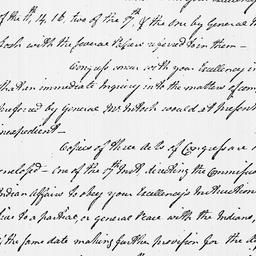 of the 4th, 14, 16, two of the 17th, & the one by General
tosh with the several Papers referred to in them—
Congress concur with your Excellency in
that an immediate Inquiry into the matters of com
preferred by General McIntosh would at present
inexpedient—
Copies of three Acts of Congress are
enclosed— one of the 17th Inst, directing the Commissi
Indian Affairs to obey your Excellency's Instruction
tive to a partial, or general Peace with the Indians,
the same date making further provision for the